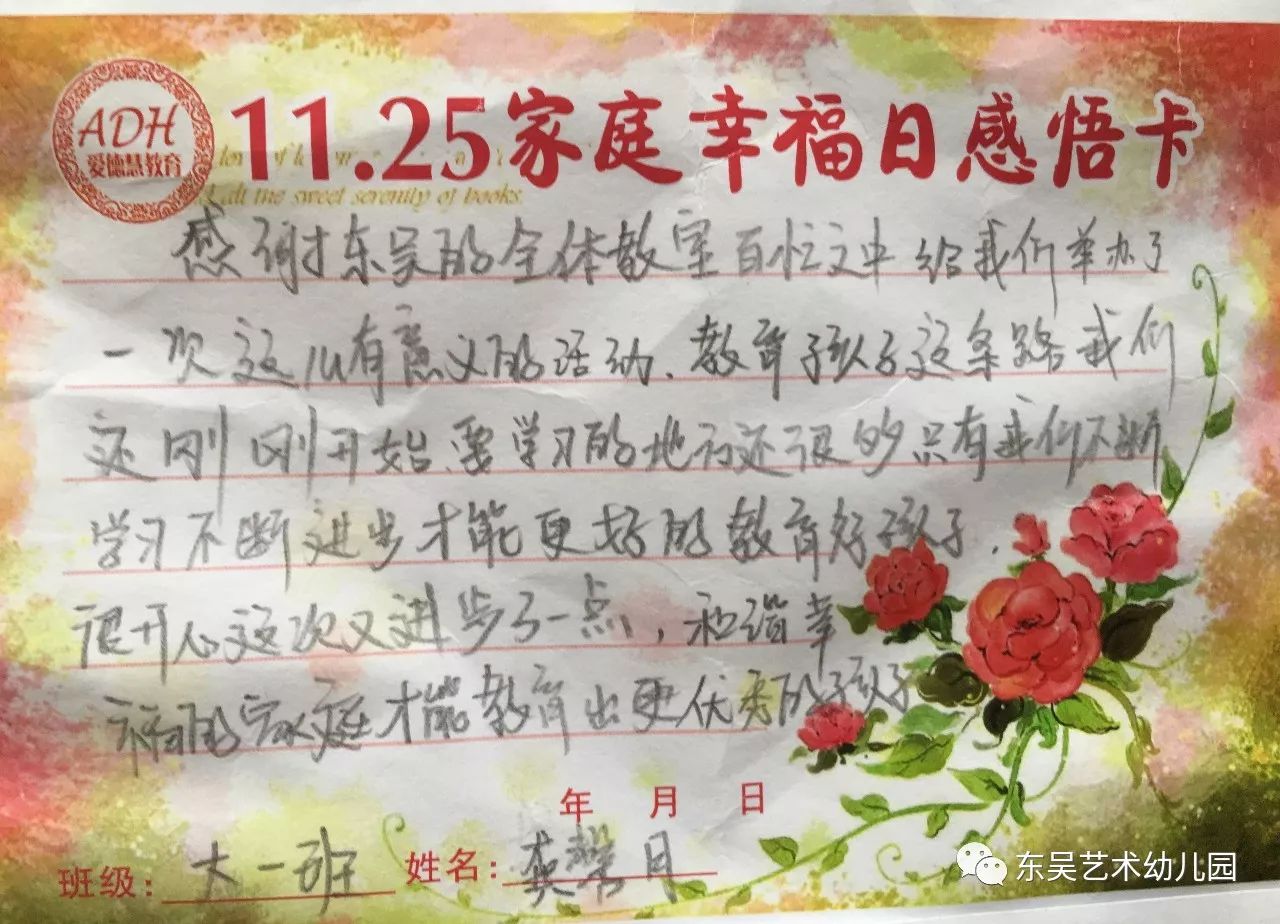 ADH
爱德慧教育
11.25家庭幸福日感悟卡
d, at the sweet serenity of books.
感谢东吴的全体教室百忙之中给我们举办了
一次这儿有意义的活动.教育孩子这条路我们
还刚刚开始.要学习的地方还很多只有我们不断
学习不断进步才能更好的教育好孩子.
很开心这次又进步了一点，和谐幸
福的家庭才能教育出更优秀的孩子
年 月 日
班级: 大一班 姓名: 月
东吴艺术幼儿园